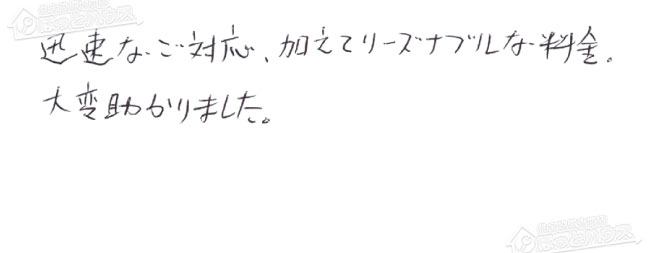 迅速なご対応、加えてリーズナブルな料金。
大変助かりました。